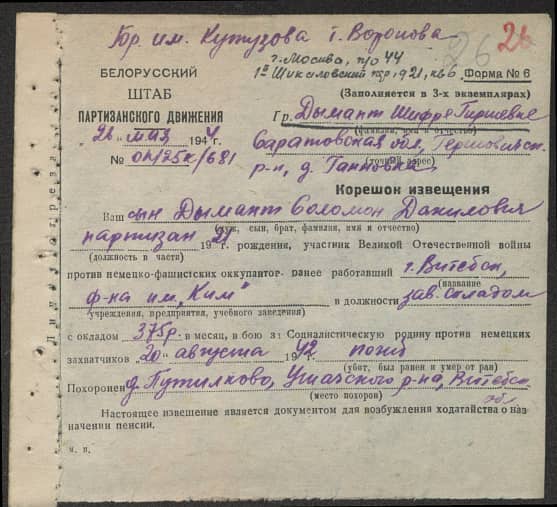 Бр. им. Кутузова г. Воронова
26
г. Москва, п/о 44
1й Чикаловский пр, 921, кв 6. Форма № 6
БЕЛОРУССКИЙ
ШТАБ
ПАРТИЗАНСКОГО ДВИЖЕНИЯ
(Заполняется в 3-х экземплярах)
Гр. Дымант Шифре Гиршевне
(фамилия, имя и отчество)
„26" мая 1944 г.
№ оп/25к/681
Саратовская обл,
(точный адрес)
р-н, д. Ганновка
Корешок извещения
Ваш сын Дымант Соломон Данилович
(муж, сын, брат, фамилия, имя и отчество)
партизан 19 г. рождения, участник Великой Отечественной войны
(должность в части)
против немецко-фашистских оккупантов, ранее работавший г. Витебск,
(название
ф-ка им. „Ким" в должности зав. складом
учреждения, предприятия, учебного заведения)
с окладом 375 р. в месяц, в бою за Социалистическую родину против немецких
захватчиков „20" августа 1942 погиб
(убит, был ранен и умер от ран)
Похоронен д. Путилково, Ушачского р-на, Витебск. обл
(место похорон)
Настоящее извещение является документом для возбуждения ходатайства о назначении пенсии.
м. п.